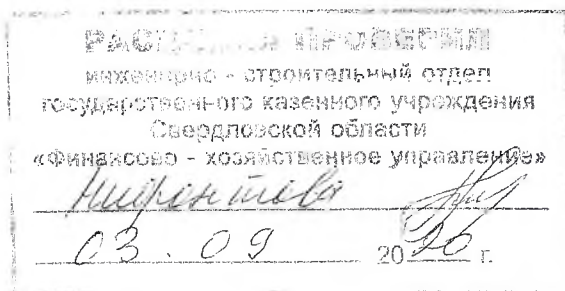 ПРОВЕРИЛ
инженерно - строительный отдел
государственного казенного учреждения
Свердловской области
«Финансово - хозяйственное управление»
03.09 2020 г.